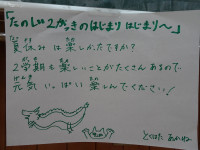 「たのしい2がっきのはじまりはじまり〜」
夏休みは楽しかったですか?
2学期も楽しいことがたくさんあるので
元気いっぱい楽しんでください!